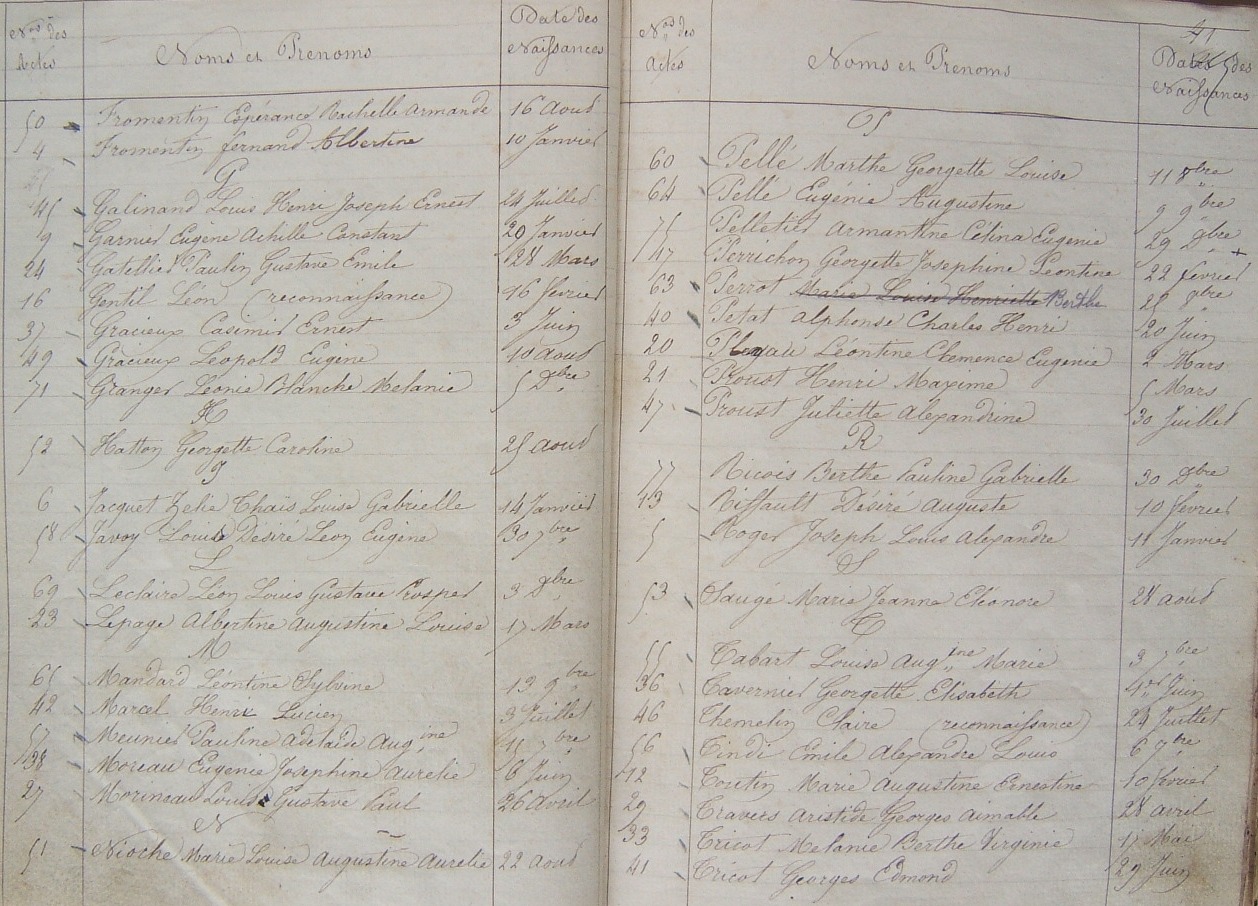 Nos des Actes
Noms et Prenoms
Date des Naissances
50 Fromentin Espérance Rachelle Armande 16 Aout
4 Fromentin fernand Albertine 10 Janvier
G
45 Galinand Louis Henri Joseph Ernest 24 Juillet
9 Garnier Eugène Achille Constant 20 Janvier
24 Gatellier Paulin Gustave Emile 28 Mars
16 Gentil Léon (reconnaissance) 16 février
37 Gracieux Casimir Ernest 3 Juin
49 Gracieux Leopold Eugène 10 Aout
71 Granger Léonie Blanche Melanie 5 Dbre
H
52 Hatton Georgette Caroline 25 aout
J
6 Jacquet Zelie Thaïs Louise Gabrielle 14 Janvier
58 Javoy Louis Désiré Leon Eugène 30 7bre
L
69 Leclaire Léon Louis Gustave Prosper 3 Dbre
23 Lepage Albertine Augustine Louise 17 Mars
M
65 Mandard Léontine Sylvine 13 9bre
42 Marcel Henri Lucien 3 Juillet
57 Meunier Pauline Adelaïde Augine 11 7bre
38 Moreau Eugenie Josephine Aurelie 6 Juin
27 Morineau Louis Gustave Paul 26 Avril
N
51 Nioche Marie Louise Augustine Aurelie 22 Aout
41
Nos des Actes
Noms et Prenoms
Dates des Naissances
P
60 Pellé Marthe Georgette Louise 11 8bre
64 Pellé Eugénie Augustine 9 9bre
75 Pelletier Armantine Célina Eugenie 29 Dbre
17 Perrichon Georgette Josephine Leontine 22 fevrier
63 Perrot Marie Louise Henriette Berthe 25 8bre
40 Petat Alphonse Charles Henri 20 Juin
20 Léontine Clemence Eugenie 2 Mars
21 Proust Henri Maxime 5 Mars
47 Proust Juliette Alexandrine 30 Juillet
R
77 Ricois Berthe Pauline Gabrielle 30 Dbre
13 Riffault Désiré Auguste 10 février
5 Roger Joseph Louis Alexandre 11 Janvier
S
53 Saugé Marie Jeanne Eléonore 28 aout
T
55 Tabart Louise Augine Marie 3 7bre
36 Tavernier Georgette Elisabeth 4 Juin
46 Themelin Claire (reconnaissance) 24 Juillet
56 Tindi Emile Alexandre Louis 6 7bre
12 Toutin Marie Augustine Ernestine 10 février
29 Travers Aristide Georges Aimable 28 avril
33 Tricot Melanie Berthe Virginie 17 Mai
41 Tricot Georges Edmond 29 Juin